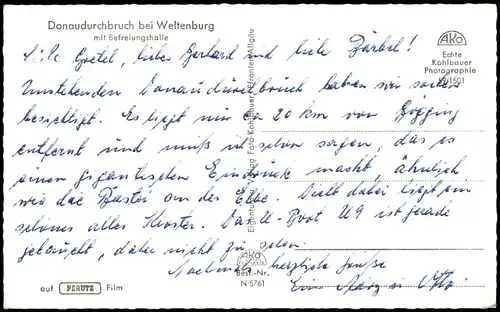 Donaudurchbruch bei Weltenburg
mit Befreiungshalle
AKO
Echte
Kohlbauer
Photographie
Liebe Gretel, lieber Gerhard und liebe Bärbel!
Umstehenden Donaudurchbruch haben wir soeben
besichtigt. Es liegt nur ca 20 km von Gögging
entfernt und muß ich schon sagen, das es
einen gigantischen Eindruck macht, ähnlich
wie die Bastei an der Elbe. Dicht dabei liegt ein
schönes altes Kloster. Das U-Boot U9 ist gerade
getaucht, daher nicht zu sehen.
Nochmals herzliche Grüße
Foto-Kohlbauer, Pfronten/Allgäu
AKO
Best.-Nr.
N 5761
auf PERUTZ Film